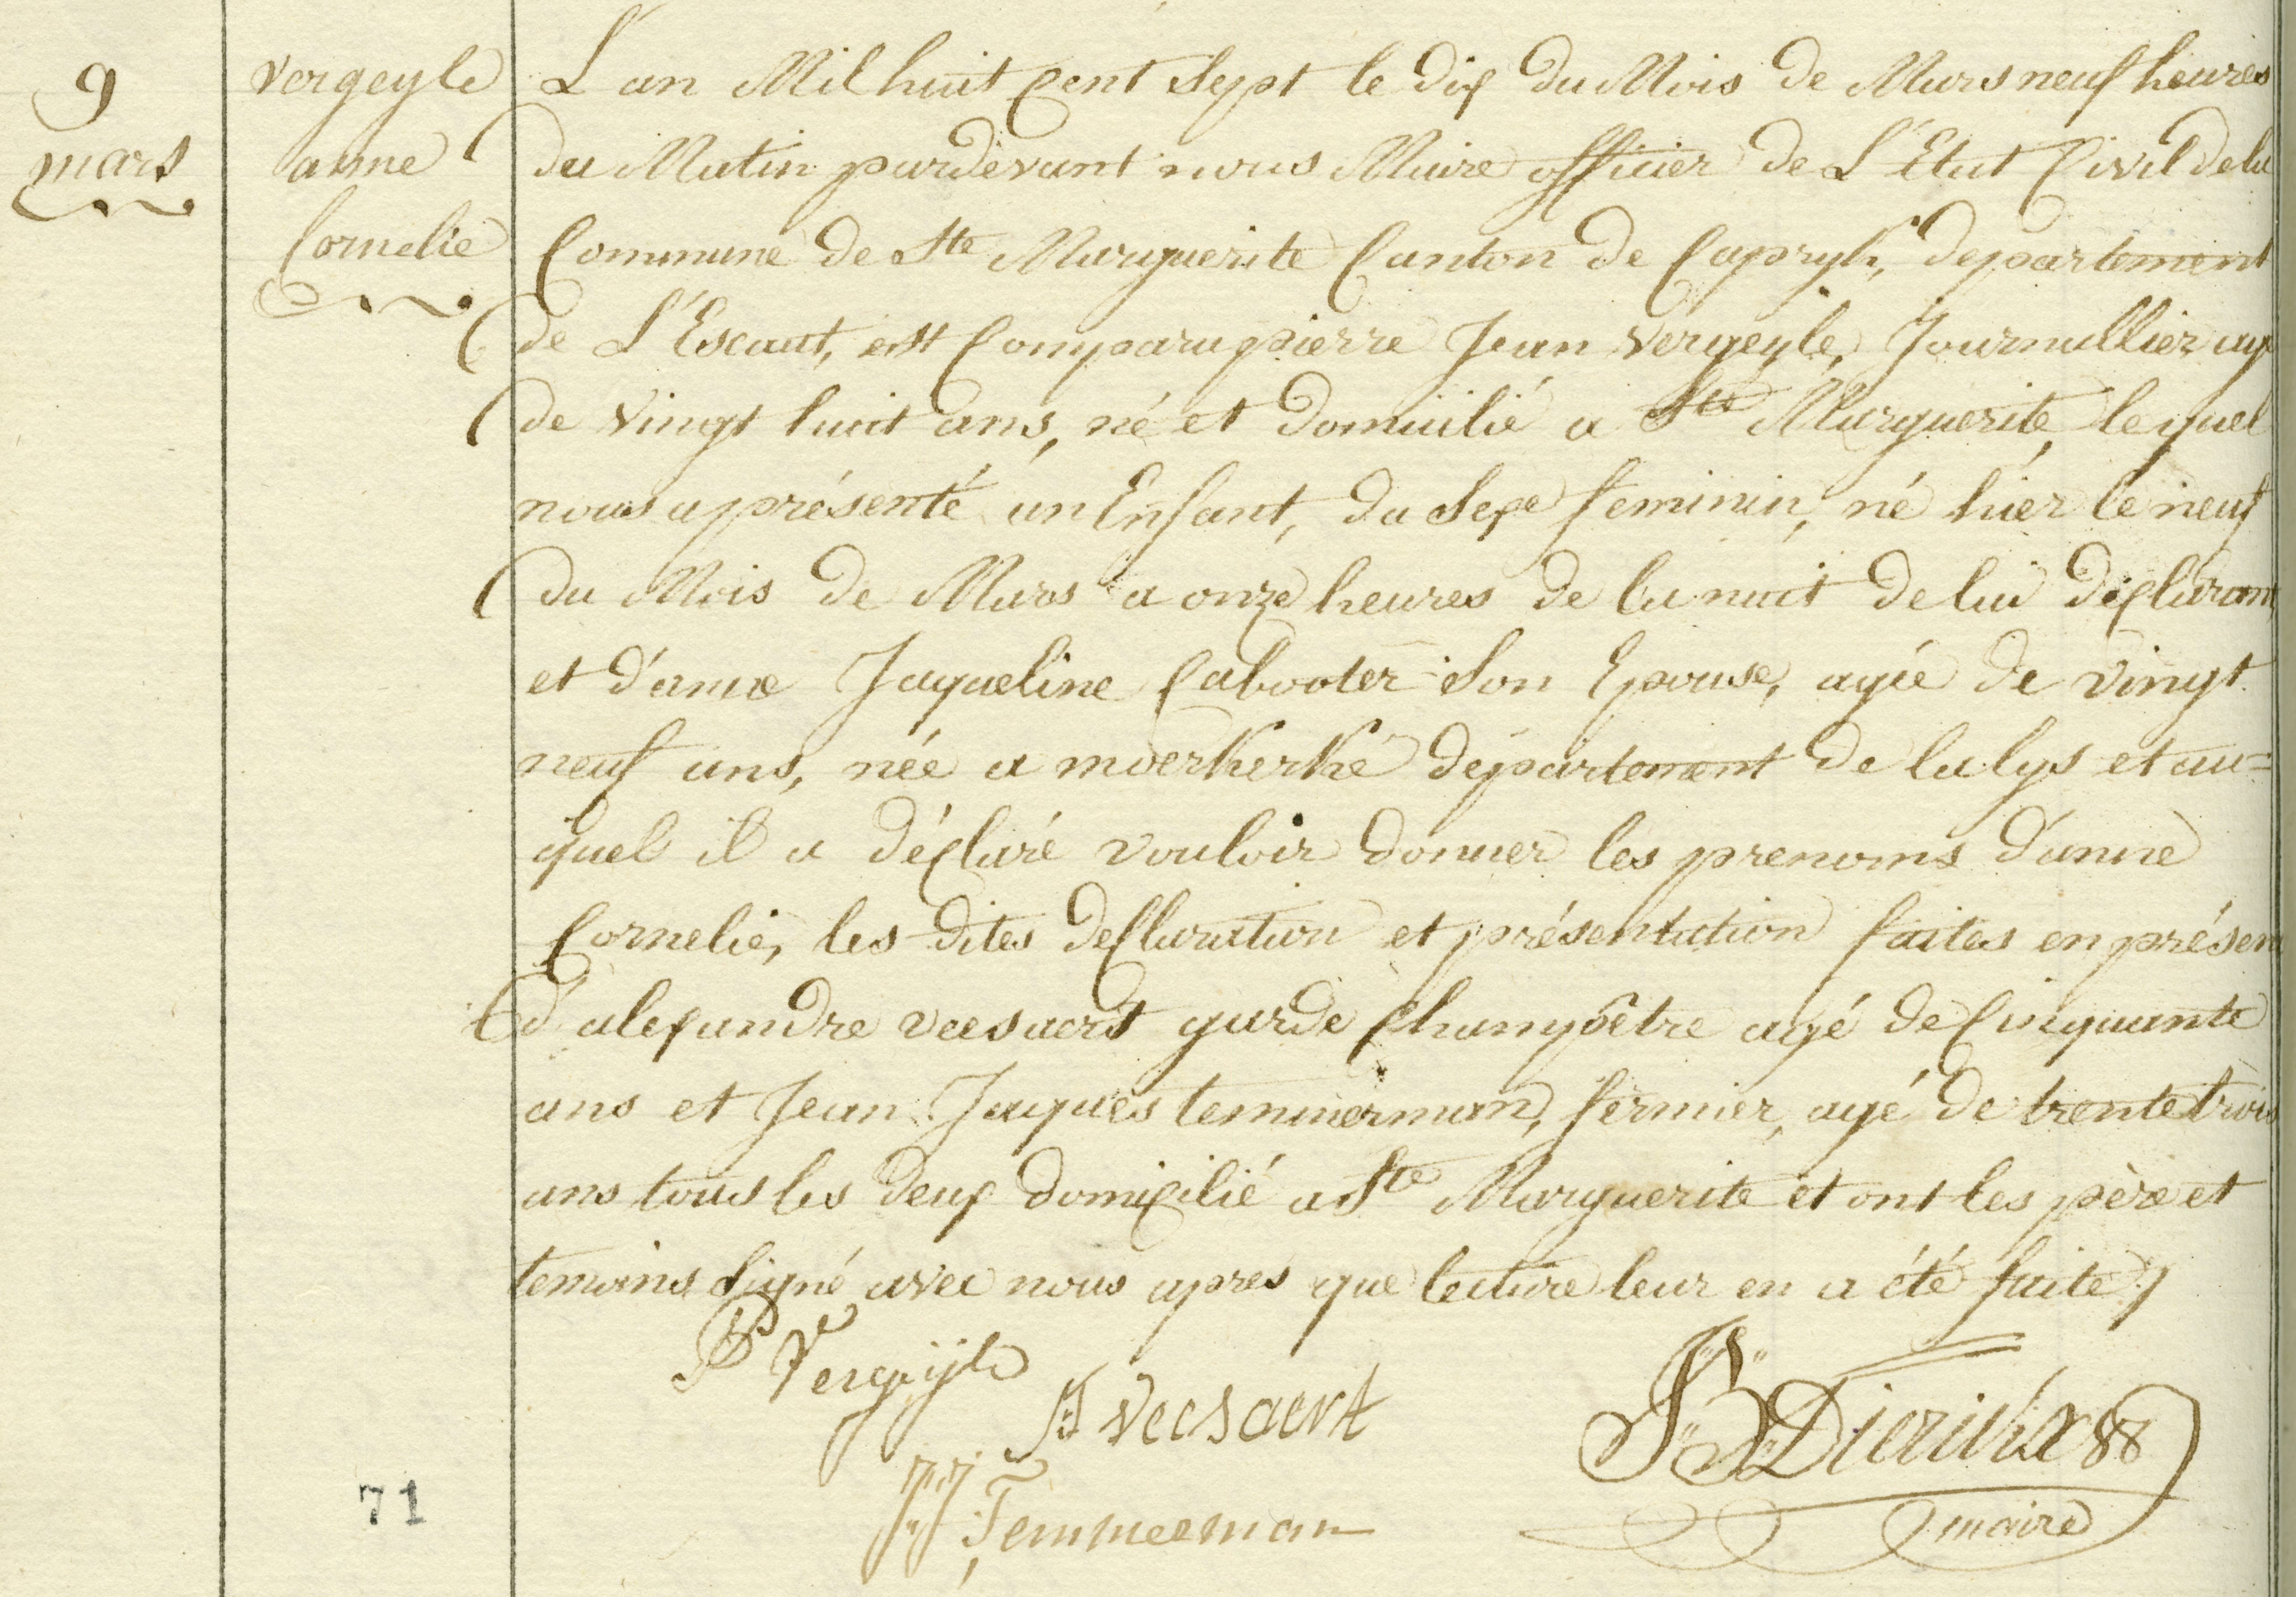 9
mars
vergeyle
anne
Cornelie
L'an Mil huit Cent Sept le dix du Mois de Mars neuf heures
du Matin pardevant nous Maire officier de L'Etat Civil de la
Commune de Ste Marguerite Canton de Capryk, departement
de L'Escaut, est Comparu pierre Jean Vergeyle, Journallier agé
de Vingt huit ans, né et domicilié a Ste Marguerite, lequel
nous a présenté un Enfant, du Sexe feminin, né hier le neuf
du Mois de Mars a onze heures de la nuit de lui déclarant
et d'anne Jaqueline Cabooter Son Epouse, agée de vingt
neuf ans, née a moerkerké département de la lys et au=
quel il a déclaré vouloir donner les prenoms d'anne
Cornelie, les dites declaration et présentation faites en présen
d'alexandre veesaert garde Champêtre agé de Cinquante
ans et Jean Jaques temmerman, fermier, agé de trente trois
ans tous les deux domicilié a Ste Marguerite et ont les père et
temoins Signé avec nous apres que lecture leur en a été faite
Vergeyle
veesaert
JJ Temmerman
Dierickx
maire
71